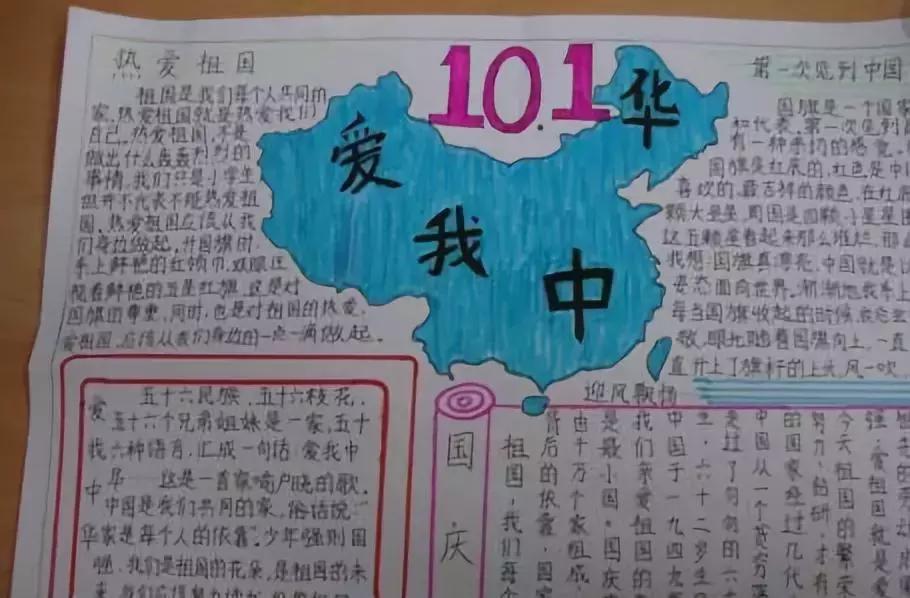 热爱祖国
祖国是我们每个人共同的
家,热爱祖国就是热爱我们
自己。热爱祖国,不是
做出什么轰轰烈烈的
事情,我们只是小学生
但并不代表不能热爱祖
国。热爱祖国应该从我
们身边做起,升国旗时,
手上鲜艳的红领巾,双眼注
视着鲜艳的五星红旗,这是对
国旗的尊重,同时,也是对祖国的热爱。
爱祖国,应该从我们身边的一点一滴做起。
10.1
爱
我
中
华
第一次见到中国
国旗是一个国家
和代表。第一次见到
有一种亲切的感觉。
国旗是红底的,红色是中
喜欢的、最吉祥的颜色。在红底
颗大星星,周围是四颗小星星围
这五颗星看起来那么堆烂,那
我想:国旗真漂亮,中国就是以
姿态面向世界。渐渐地我手上
每当国旗收起的时候,我总
敬,眼光随着国旗向上,一直
直升上了旗杆的上头,风一吹,
迎风飘扬
爱中
五十六民族,五十六枝花,
五十六个兄弟姐妹是一家,五十
六种语言,汇成一句话:爱我中
华——这是一首家喻户晓的歌。
中国是我们共同的家。俗话说:“
华家是每个人的依靠”。少年强则国
强。我们是祖国的花朵,是祖国的未
国庆
祖国,我们每个
背后的依靠。国家
由千万个家组成,
是最小国。国庆
我们亲爱祖国的
中国于一九四九
生。六十二岁生
来过了匆匆的六十
中国从一个贫穷
的国家经过几代
努力、钻研,才有
今天祖国的繁荣
强。爱祖国就是爱